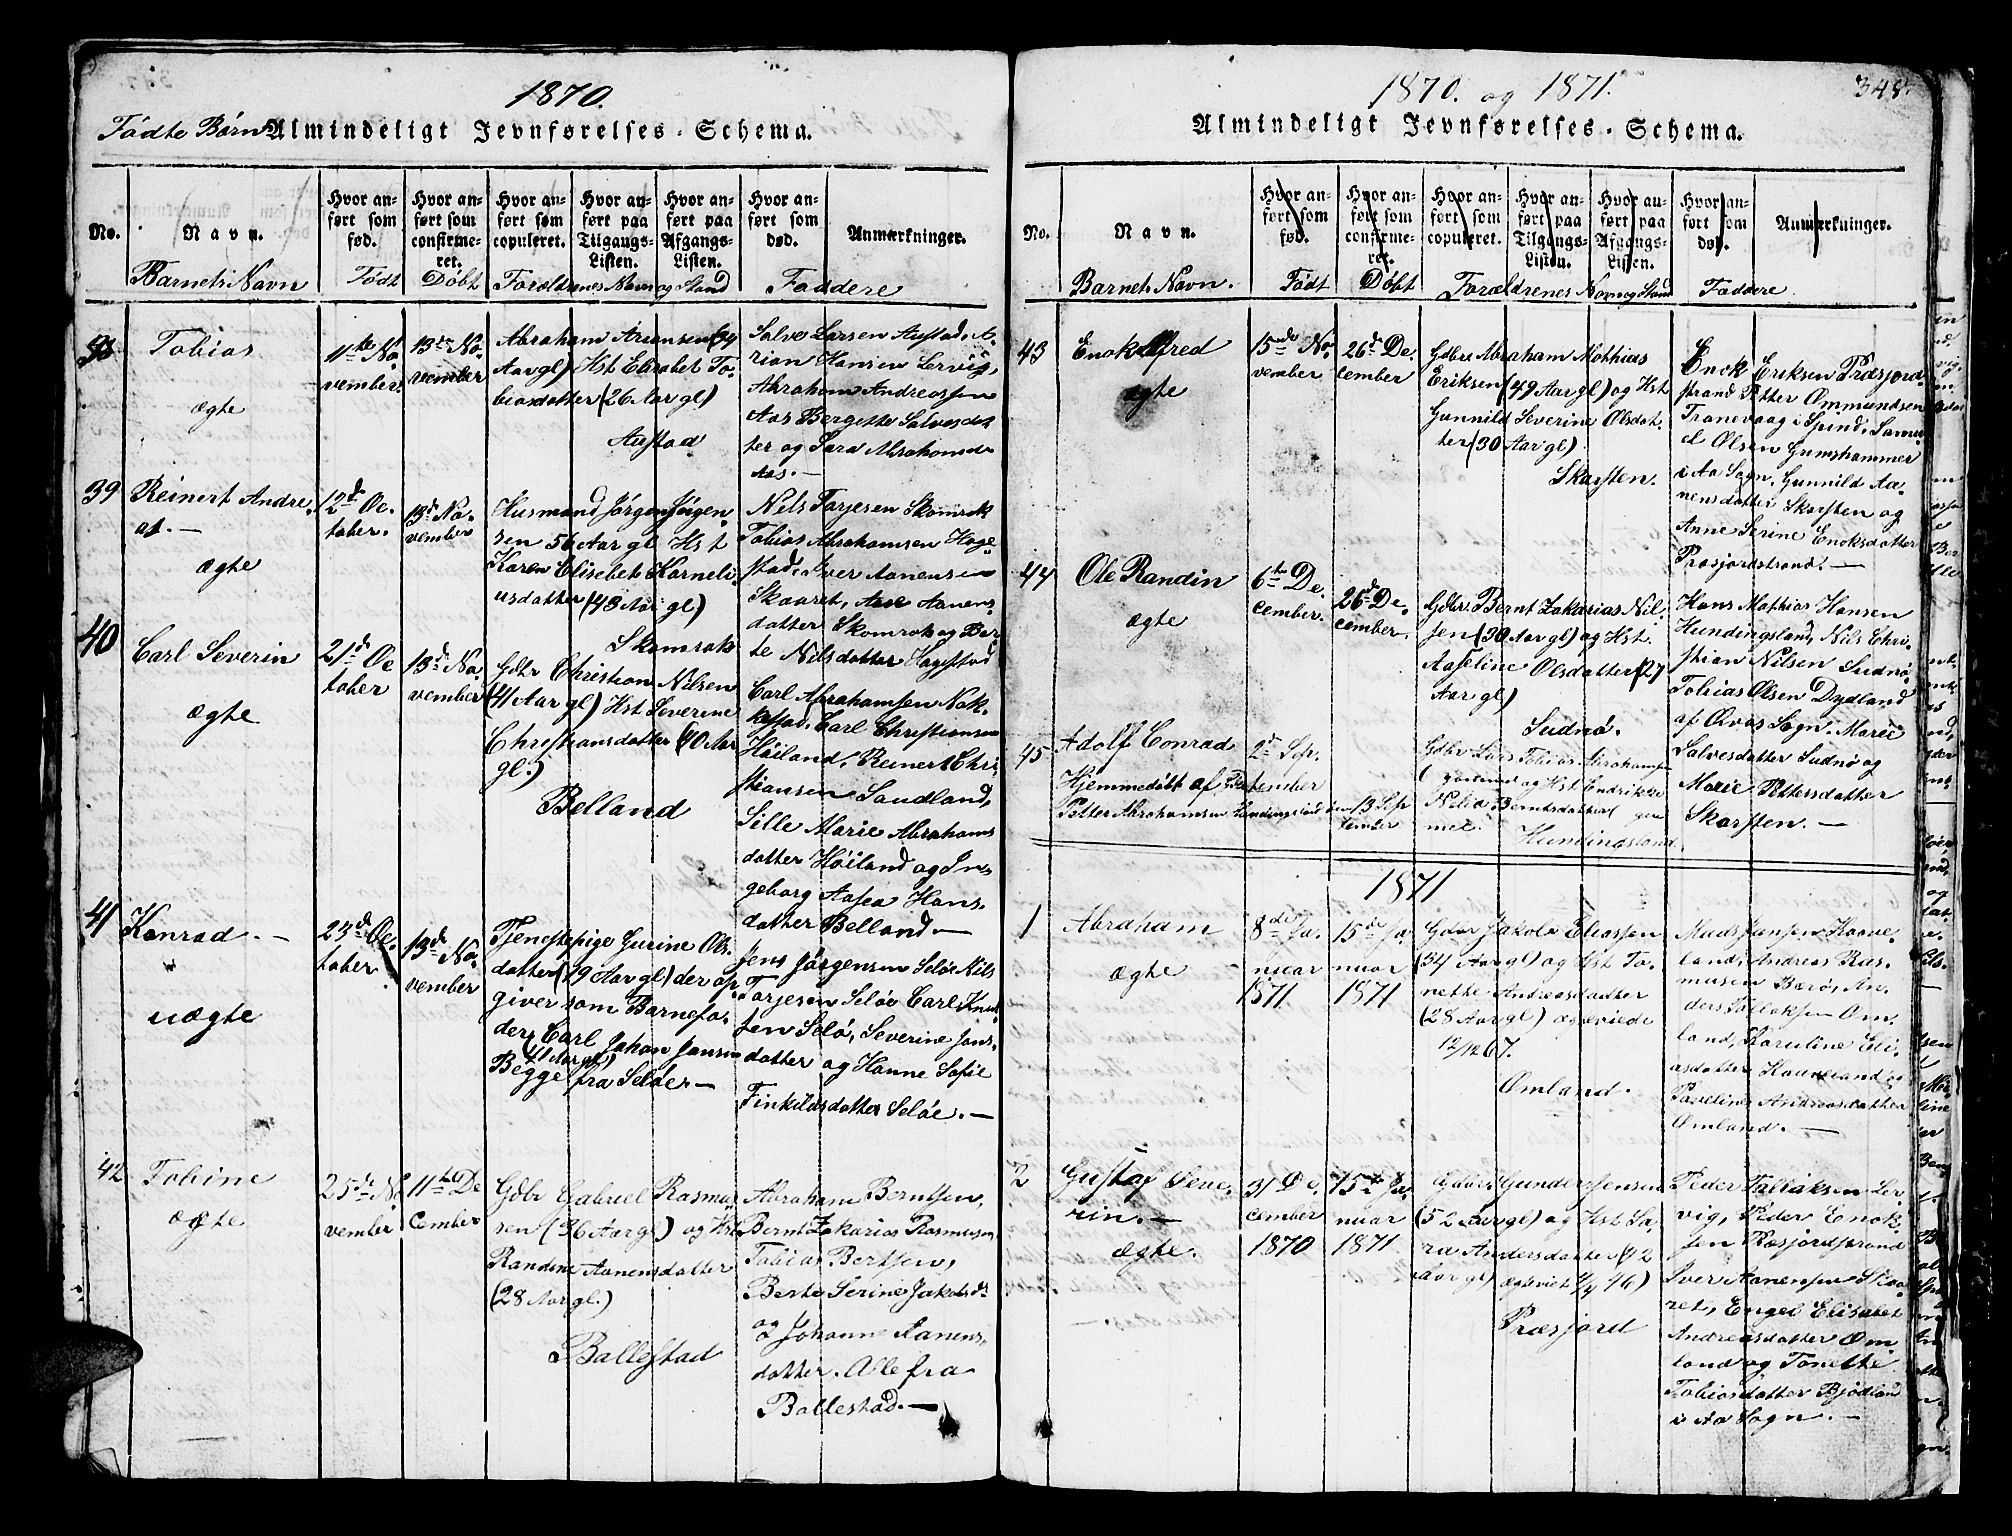 1870.
Fødte Børn
Almindeligt Jevnførelses-Schema.
No.
Navn.
Hvor anført som fød.
Hvor anført som confirmeret.
Hvor anført som copuleret.
Hvor anført paa Tilgangs-Listen.
Hvor anført paa Afgangs-Listen.
Hvor anført som død.
Anmærkninger.
Barnets Navn
Født
Døbt
Forældrenes Navn og Stand
Faddere
Tobias
ægte
11te No-
vember
13de No-
vember
Abraham
Aar gl) Hst Elisabet To-
biasdatter (26 Aar gl)
Austad
Salve Larsen Austad, A-
rian Hansen Lervig,
Abraham Andreassen
Aas Bergette Salvesdat-
ter og Sara Abrahamsd
Aas.—
39
Reinert Andre-
as.—
ægte
12de Oc-
tober.
13de No-
vember
Husmand Jørgen Jørgen-
sen 56 Aar gl Hst
Karen Elisebet Korneli-
usdatter (48 Aar gl)
Skomrak
Nils Torjesen Skomrak
Tobias Abrahamsen Hage-
stad, Iver Aanensen
Skaaret, Aase Aanens-
datter Skomrak og Ber-
te Nilsdatter Hagestad
40
Carl Severin
ægte
21de Oc
tober
13de No-
vember
Gdbr Christian Nilsen
(41 Aar gl) Hst Severine
Christiansdatter (40 Aar
gl.)
Belland
Carl Abrahamsen Nok-
kestad, Carl Christiansen
Høiland, Reinert Chri-
stiansen Saudland,
Sille Marie Abrahams
datter Høiland og In-
geborg Aasea Hans-
datter Belland.—
41
Konrad.—
uægte
23de Oc-
tober
13de No-
vember
Tjenestepige Gurine Ols-
datter (19 Aar gl) der op-
giver som Barnefa-
der Carl Johan Jansen
(41 Aar gl)
Begge fra Seløe.—
Jens Jørgensen Seløe Nils
Torjesen Seløe Carl Knut-
sen Seløe, Severine Jans-
datter og Hanne Sofie
Finkildsdatter Seløe.—
42
Tobine
ægte
25de No
vember
11te De
cember
Gdbr Gabriel Rasmus-
sen (36 Aar gl) og Hst
Randine Aanensdatter
(28 Aar gl.)
Ballestad
Abraham Berntsen,
Bernt Zakarias Rasmussen
Tobias Bertsen,
Berte Serine Jakobsdr
og Johanne Aanens-
datter. Alle fra
Ballestad.—
1870. og 1871.
348.
Almindeligt Jevnførelses-Schema.
No.
Navn.
Hvor anført som fød.
Hvor anført som confirmeret.
Hvor anført som copuleret.
Hvor anført paa Tilgangs-Listen.
Hvor anført paa Afgangs-Listen.
Hvor anført som død.
Anmærkninger.
Barnets Navn.
Født
Døbt
Forældrenes Navn og Stand
Faddere
43
Enok Alfred
ægte
15nde No-
vember
26de De-
cember
Gdbr Abraham Mathias
Eriksen (49 Aar gl) og Hst
Gunnild Severine Olsdat-
ter (30 Aar gl)
Skarsten.
Enok Eriksen Præsjord-
strand Petter Ommundsen
Tranevaag i Spind, Samu-
el Olsen Gumshammer
i Aa Sogn, Gunnild Aa-
nensdatter Skarsten og
Anne Serine Enoksdatter
Præsjordstrand.—
44
Ole Randin
ægte
6te De-
cember.
26de De-
cember.
Gdbr. Bernt Zakarias Nil-
sen (30 Aar gl) og Hst
Aaseline Olsdatter (27
Aar gl)
Sudnø.
Hans Mathias Hansen
Hundingsland, Nils Chri-
stian Nilsen Sudnø,
Tobias Olsen Dydland
af Qvas Sogn. Marie
Salvesdatter Sudnø og
Marie Pettersdatter
Skarsten.—
45
Adolf Conrad
Hjemmedøbt af
Petter Abrahamsen Hundingsland den 13 Sep
tember
2de Sep-
tember
Gdbr Lars Tobias Abrahamsen
og Hst Endrikke
Nilia Berntsdatter
Hundingsland
1871
1
Abraham
ægte
8de Ja-
nuar
1871.
15de Ja-
nuar
1871
Gdbr Jakob Eliassen
(34 Aar gl) og Hst To-
nette Andreasdatter
(28 Aar gl) ægteviede
12/12 67.
Omland.
Mads Jansen Haave-
land, Andreas Ras-
musen Barø, An-
ders Tollaksen Om-
land, Karoline Eli-
asdatter Haaveland og
Paveline Andreasdatter
Omland.—
2
Gustaf Seve-
rin.—
ægte.
31 De-
cember
1870
15de Ja-
nuar
1871
Gdbr. Gunder Jensen
(52 Aar gl) og Hst Sa-
ra Andersdatter (42
Aar gl) ægteviet 4/4 46)
Præsjord
Peder Tallaksen Ler-
vig, Peder Enok-
sen Præsjordstrand
Iver Aanensen Skaa-
ret, Engel Elisabet
Andreasdatter Om-
land og Tonette
Tobiasdatter Bjødland
i Aa Sogn.—